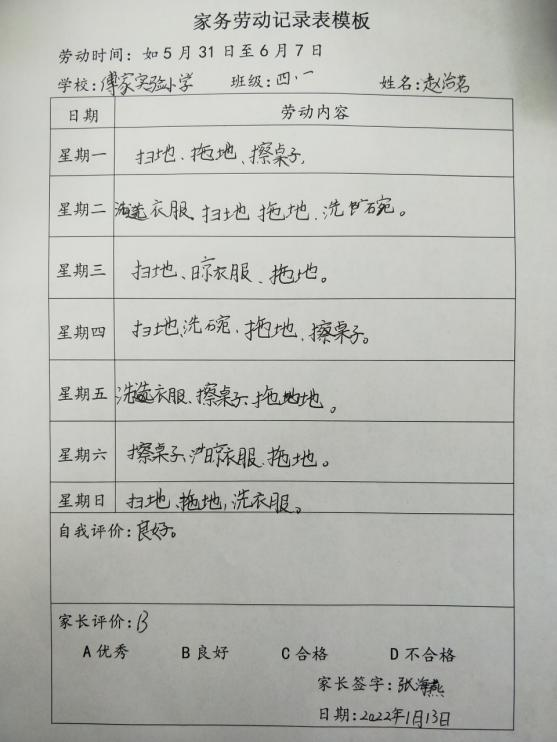 家务劳动记录表模板
劳动时间：如5月31日至6月7日
学校:傅家实验小学 班级:四.一 姓名:赵治茗
日期 劳动内容
星期一 扫地、拖地、擦桌子,
星期二 洗衣服、扫地、拖地、洗碗。
星期三 扫地、晾衣服、拖地。
星期四 扫地、洗碗、拖地、擦桌子。
星期五 洗衣服、擦桌子、拖地。
星期六 擦桌子、晾衣服、拖地。
星期日 扫地、拖地,洗衣服。
自我评价:良好。
家长评价:B
A优秀 B良好 C合格 D不合格
家长签字:张海燕
日期:2022年1月13日